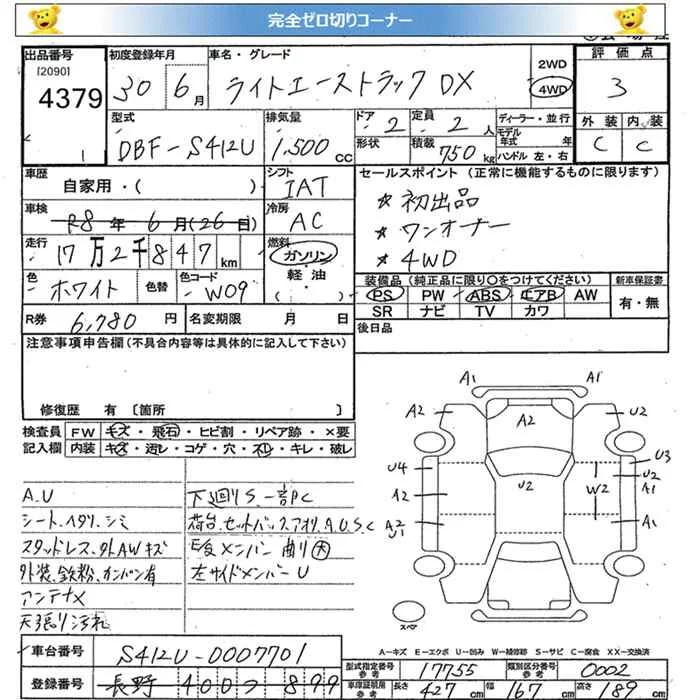 完全ゼロ切りコーナー
出品番号
[2090]
4379
1
初度登録年月
30年 6月
車名・グレード
ライトエーストラック DX
2WD
4WD
評価点
3
型式
DBF-S412U
排気量
1,500 cc
ドア
2
定員
2人
形状
積載
750 kg
ディーラー・並行
モデル年式 年
ハンドル 左・右
外装 内装
C C
車歴
自家用・( )
シフト
IAT
車検
R8年 6月(26日)
冷房
AC
走行
17万2千847km
燃料
ガソリン・
軽・油
( )
色
ホワイト
色替
色コード
W09
R券
6,780円
名変期限 月 日
セールスポイント(正常に機能するものに限ります)
★ 初出品
★ ワンオーナー
★ 4WD
装備品(純正品に限り○をつけてください)
新車保証書
PS PW ABS エアB AW
SR ナビ TV カワ
有・無
後日品
注意事項申告欄(不具合内容等は具体的に記入して下さい)
修復歴 有〔箇所 〕
検査員 FW キズ・飛石・ヒビ割・リペア跡・×要
記入欄 内装 キズ・汚レ・コゲ・穴・スレ・キレ・破レ
A.U
シート、ヘタリ、シミ
スタッドレス、外AWキズ
外装、鉄粉、カンバン有
アンテナX
天張り汚れ
下廻りS、一部C
荷台、セットバック、アオリ、A.U.S.C
メンバー曲り大
左サイドメンバーU
A1 A1
A2 A2 U2
U4 U3
U2
A1
A2 U2 W2
A2
U1
A1
スペア
A－キズ E－エクボ U－凹み W－補修跡 S－サビ C－腐食 XX－交換済
車台番号
S412U-0007701
登録番号
長野 400 899
型式指定番号
参考
17755
類別区分番号
参考
0002
車庫証明用
参考
長さ 427cm 幅 167cm 高さ 189cm